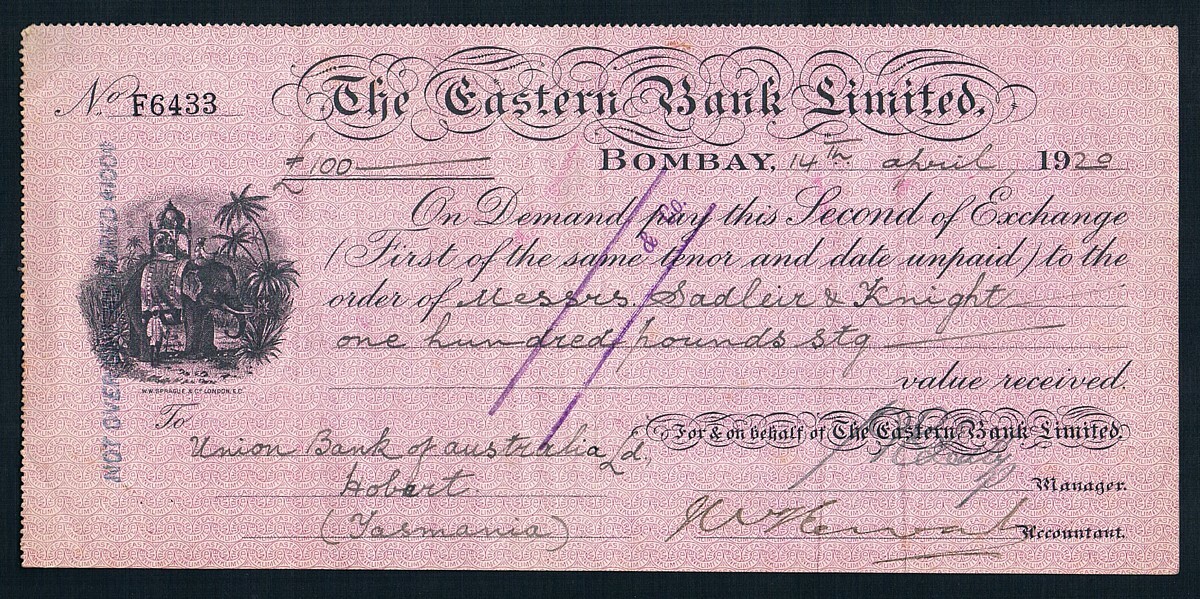 No. F6433
The Eastern Bank Limited.
£100
BOMBAY, 14TH april 1920
On Demand pay this Second of Exchange
(First of the same tenor and date unpaid) to the
order of Messrs. Sadleir & Knight
one hundred pounds stg
value received.
& Co.
NOT OVER
W.W. SPRAGUE & Co LONDON, E.C.
To
Union Bank of australia Ld.,
Hobart
(Tasmania)
For & on behalf of The Eastern Bank Limited.
Manager.
Accountant.